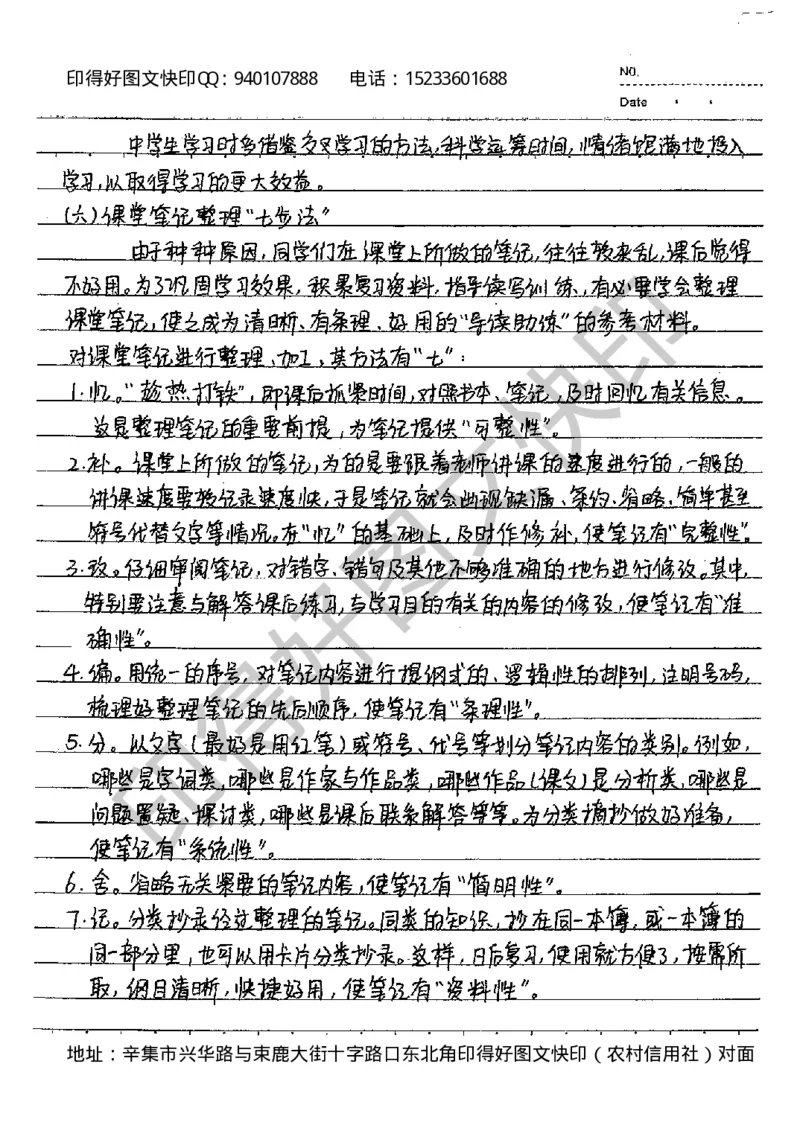 印得好图文快印QQ：940107888 电话：15233601688
No.
Date
中学生学习时多借鉴多叉学习的方法,科学运筹时间,情绪饱满地投入
学习,以取得学习的更大效益。
(六)课堂笔记整理“七步法”
由于种种原因,同学们在课堂上所做的笔记,往往较杂乱,课后觉得
不好用。为了巩固学习效果,积累复习资料,指导读写训练,有必要学会整理
课堂笔记,使之成为清晰、有条理、好用的“导读助练”的参考材料。
对课堂笔记进行整理、加工,其方法有“七”:
1.忆。“趁热打铁”,即课后抓紧时间,对照书本、笔记,及时回忆有关信息。
这是整理笔记的重要前提,为笔记提供“可整性”。
2.补。课堂上所做的笔记,为的是要跟着老师讲课的速度进行的,一般的
讲课速度要较记录速度快,于是笔记就会出现缺漏、条约、省略、简单甚至
符号代替文字等情况。在“忆”的基础上,及时作修补,使笔记有“完整性”。
3.改。仔细审阅笔记,对错字、错句及其他不够准确的地方进行修改。其中,
特别要注意与解答课后练习,与学习目的有关的内容的修改,使笔记有“准
确性”。
4.编。用统一的序号,对笔记内容进行提纲式的、逻辑性的排列,注明号码,
梳理好整理笔记的先后顺序,使笔记有“条理性”。
5.分。以文字(最好是用红笔)或符号、代号等划分笔记内容的类别。例如,
哪些是字词类,哪些是作家与作品类,哪些作品(课文)是分析类,哪些是
问题置疑、探讨类,哪些是课后联系解答等等。为分类摘抄做好准备,
使笔记有“系统性”。
6.舍。省略无关紧要的笔记内容,使笔记有“简明性”。
7.记。分类抄录经过整理的笔记。同类的知识,抄在同一本簿,或一本簿的
同一部分里,也可以用卡片分类抄录。这样,日后复习,使用就方便了,按需所
取,纲目清晰,快捷好用,使笔记有“资料性”。
地址：辛集市兴华路与束鹿大街十字路口东北角印得好图文快印（农村信用社）对面
印得好图文快印